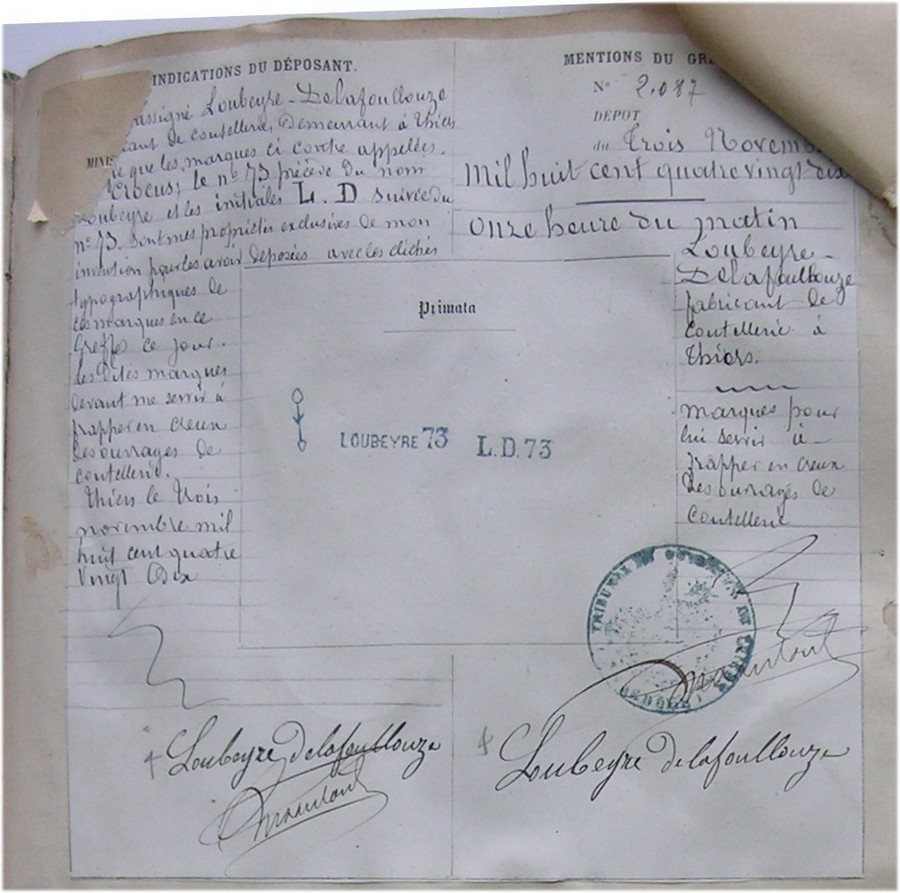 INDICATIONS DU DÉPOSANT.
assigné Loubeyre-Delafoullouze
cant de coutellerie, Demeurant à Thiers
MINIS
e que les marques ci contre appelées.
Crocus; le nº 73 précédé du nom
Loubeyre et les initiales L. D suivie du
nº 73. Sont mes propriétés exclusives de mon
invention pour les avoir déposées avec les clichés
typographiques de
ces marques en ce
Greffe ce jour.
les dites marques
devant me servir à
frapper en creux
des ouvrages de
coutellerie.
Thiers le trois
novembre mil
huit cent quatre
vingt Dix
Loubeyre Delafoullouze
MENTIONS DU GR
Nº 2.087
DÉPOT
du Trois Novemb
Mil huit cent quatre vingt dix
onze heure du matin
Loubeyre-
Delafoullouze
fabricant de
Coutellerie à
Thiers.
marques pour
lui servir à
frapper en creux
des ouvrages de
Coutellerie
Primata
LOUBEYRE 73 L.D.73
TRIBUNAL DE
Loubeyre Delafoullouze